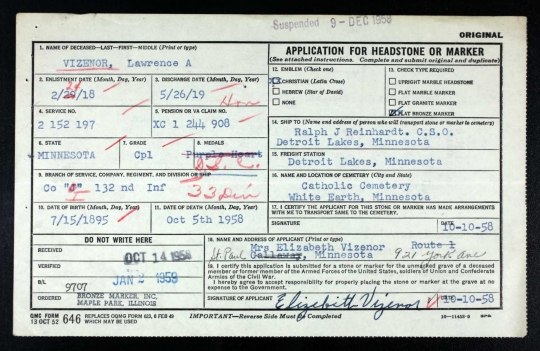 Suspended 9-DEC 1958
ORIGINAL
1. NAME OF DECEASED—LAST—FIRST—MIDDLE (Print or type)
VIZENOR, Lawrence A
APPLICATION FOR HEADSTONE OR MARKER
(See attached instructions. Complete and submit original and duplicate)
2. ENLISTMENT DATE (Month, Day, Year)
3. DISCHARGE DATE (Month, Day, Year)
5/26/19 Hon
12. EMBLEM (Check one)
CHRISTIAN (Latin Cross)
HEBREW (Star of David)
NONE
13. CHECK TYPE REQUIRED
UPRIGHT MARBLE HEADSTONE
FLAT MARBLE MARKER
FLAT GRANITE MARKER
FLAT BRONZE MARKER
4. SERVICE NO.
2 152 197
5. PENSION OR VA CLAIM NO.
XC 1 244 908
14. SHIP TO (Name and address of person who will transport stone or marker to cemetery)
Ralph J Reinhardt. C.S.O.
Detroit Lakes, Minnesota
6. STATE
MINNESOTA
7. GRADE
Cpl
8. MEDALS
Purple Heart
15. FREIGHT STATION
Detroit Lakes, Minnesota
9. BRANCH OF SERVICE, COMPANY, REGIMENT, AND DIVISION OR SHIP
Co 132 nd Inf 33 Div
16. NAME AND LOCATION OF CEMETERY (City and State)
Catholic Cemetery
White Earth, Minnesota
10. DATE OF BIRTH (Month, Day, Year)
7/15/1895
11. DATE OF DEATH (Month, Day, Year)
Oct 5th 1958
17. I CERTIFY THE APPLICANT FOR THIS STONE OR MARKER HAS MADE ARRANGEMENTS WITH ME TO TRANSPORT SAME TO THE CEMETERY.
SIGNATURE
10-10-58
DO NOT WRITE HERE
RECEIVED
OCT 14 1958
VERIFIED
JAN 2 1959
B/L
9707
ORDERED
BRONZE MARKER, INC.
MAPLE PARK, ILLINOIS
18. NAME AND ADDRESS OF APPLICANT (Print or type)
Mrs Elizabeth Vizenor Route 1
St. Paul Callaway, Minnesota 921 York Ave
I certify this application is submitted for a stone or marker for the unmarked grave of a deceased member or former member of the Armed Forces of the United States, soldiers of Union and Confederate Armies of the Civil War.
I hereby agree to accept responsibility for properly placing the stone or marker at the grave at no expense to the Government.
SIGNATURE OF APPLICANT
Elizabeth Vizenor
10-10-58
QMC FORM 13 OCT 52 646
REPLACES QMC FORM 623, 8 FEB 49 WHICH MAY BE USED
IMPORTANT—Reverse Side Must be Completed
16—11453-6 GPO